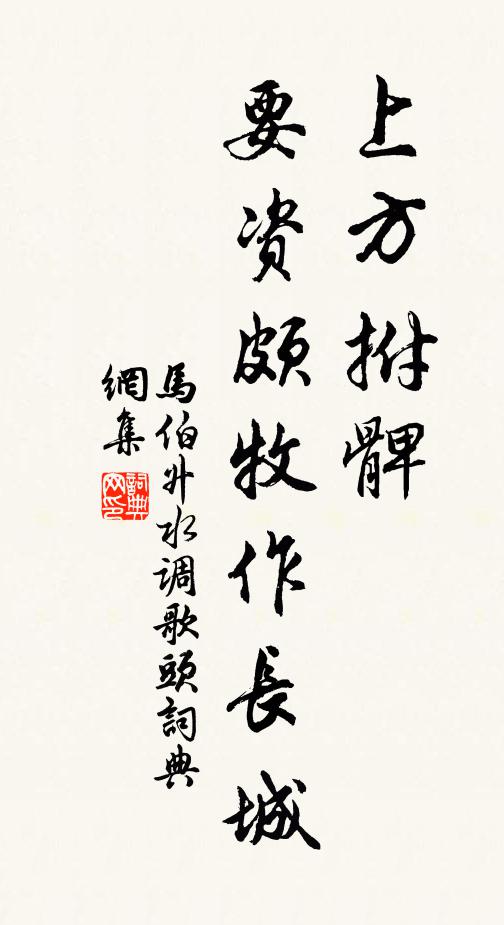 上方拊髀
要资頗牧作長城
馬伯升水调歌頭詞典
網集
詞典
网印